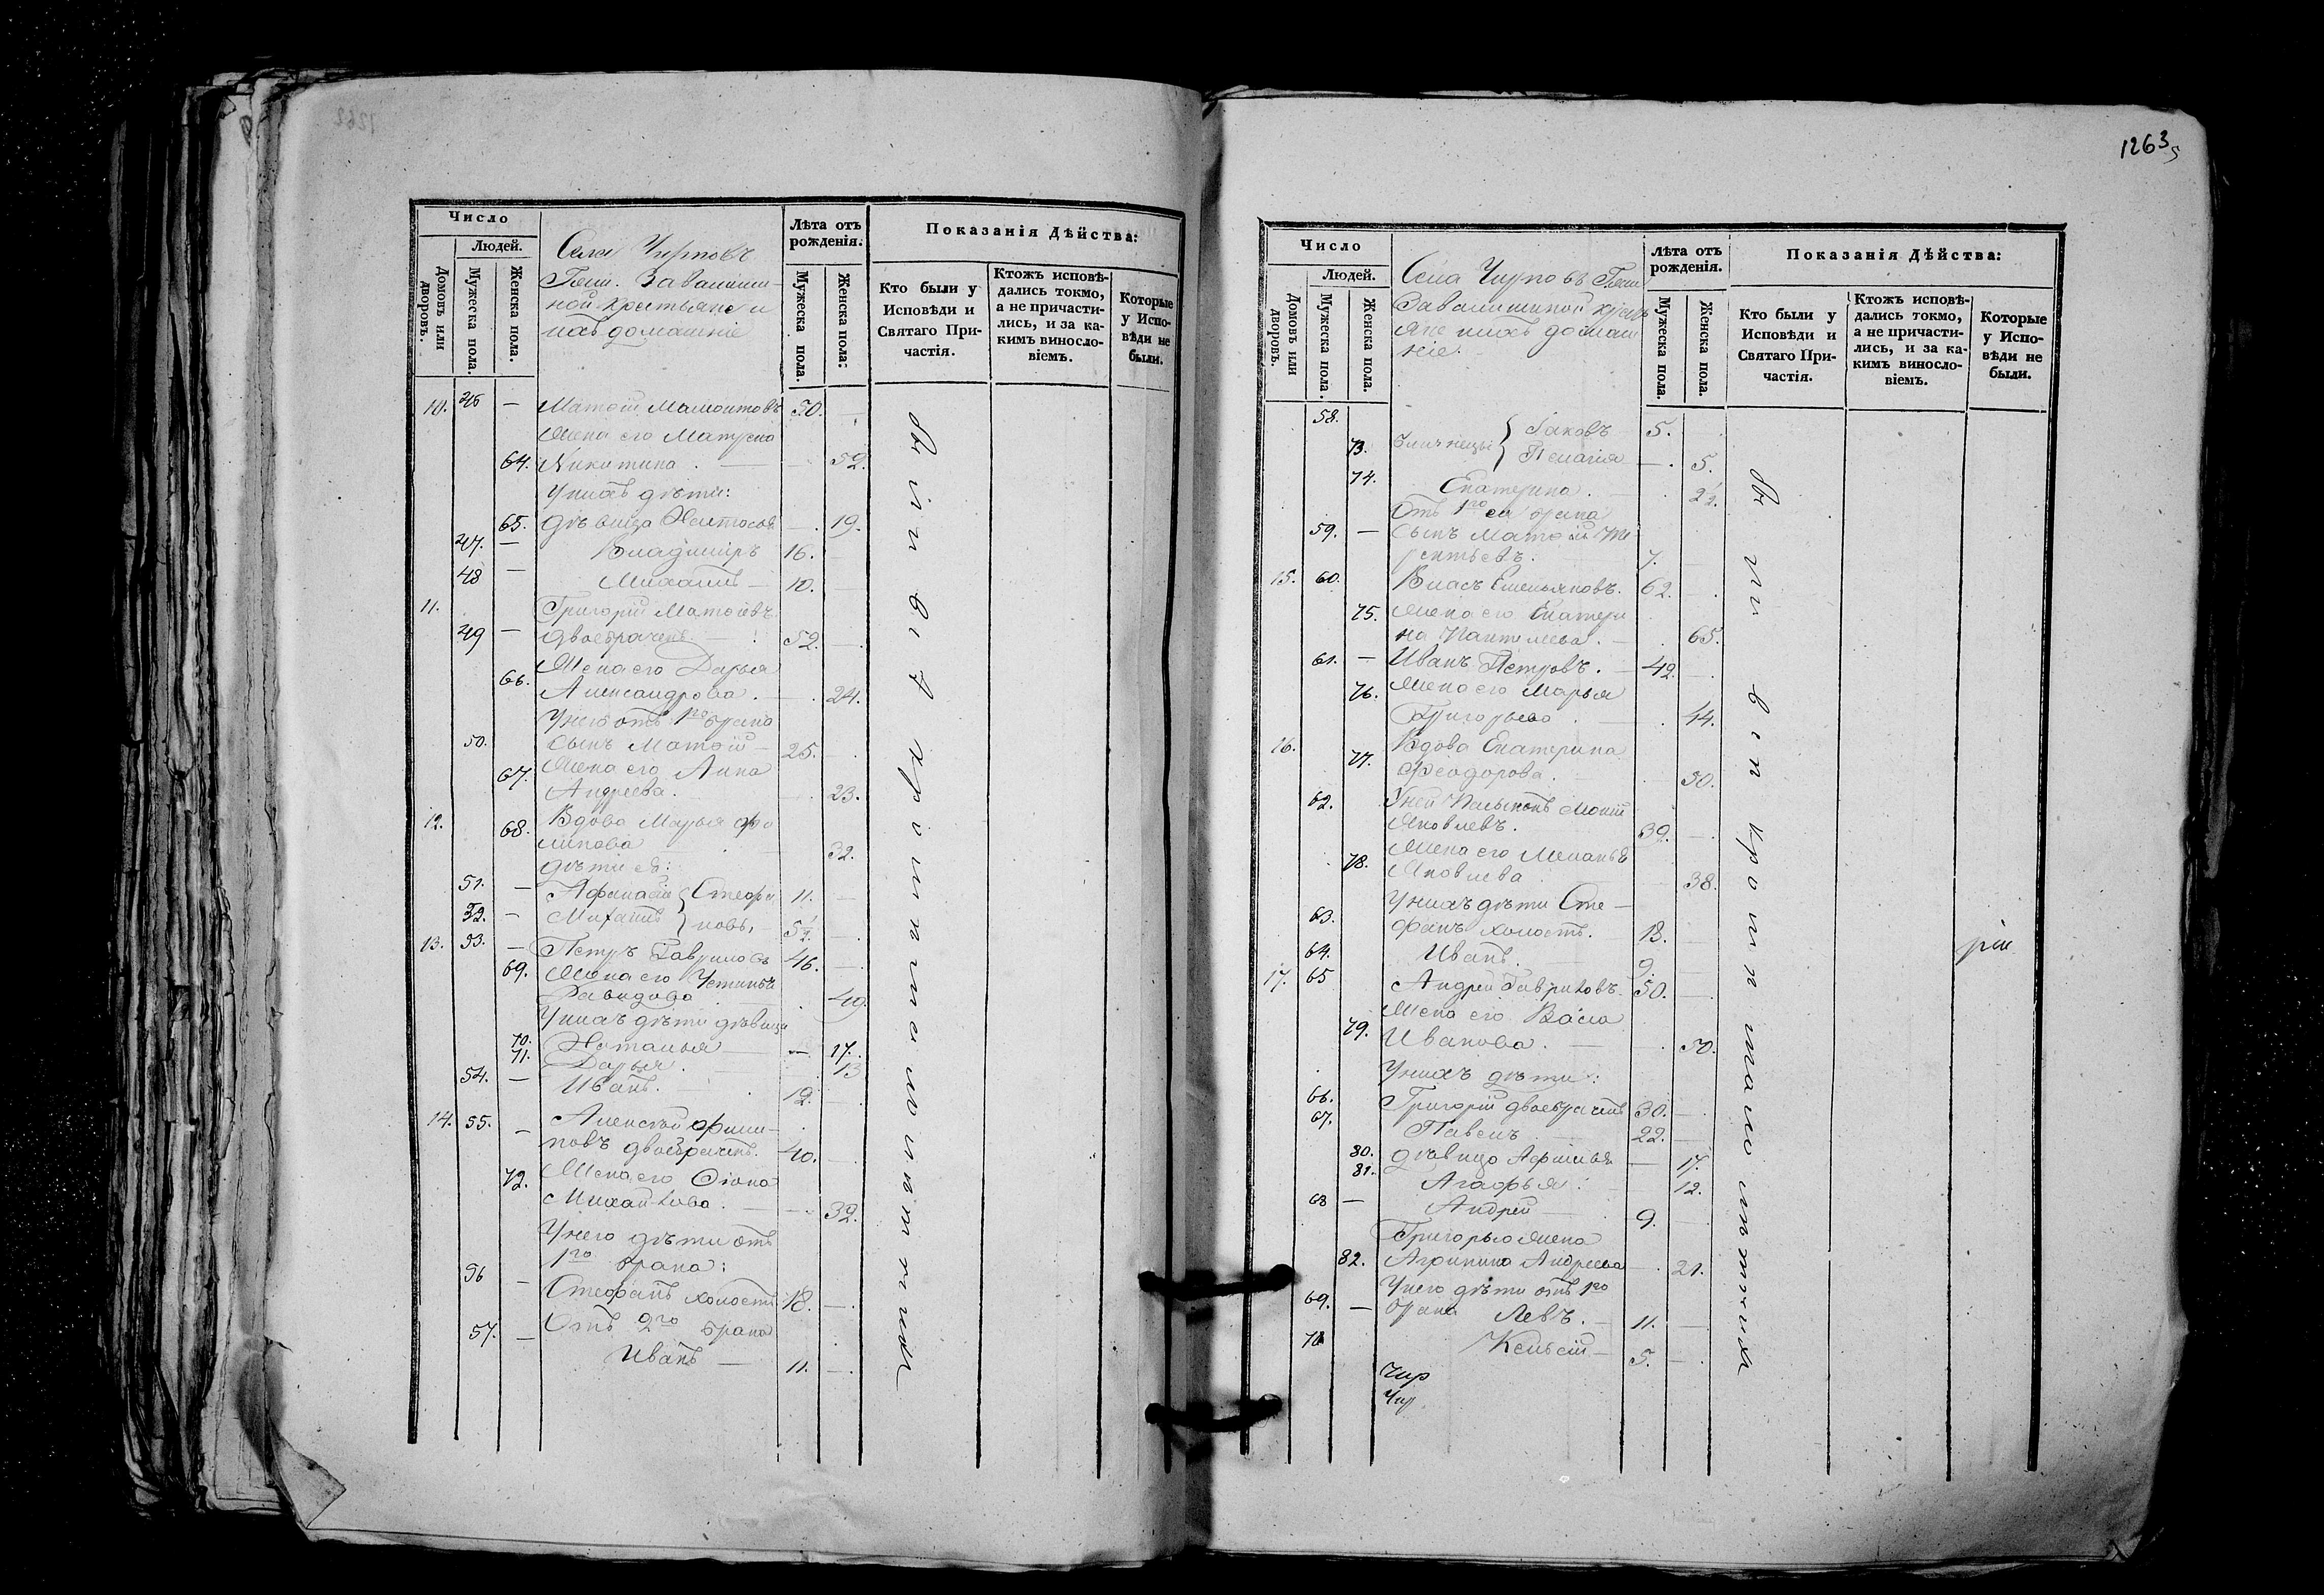 Число
Людей.
Домовъ или дворовъ.
Мужеска пола.
Женска пола.
Села Чирповъ
Гспж. Завалиши-
ной крестьяне и
ихъ домашніе
Лѣта отъ рожденія.
Мужеска пола.
Женска пола:
Показанія Дѣйства:
Кто были у Исповѣди и Святаго При-частія.
Ктожъ исповѣ-дались токмо, а не причасти-лись, и за ка-кимъ виносло-віемъ.
Которые у Испо-вѣди не были.
10. 46 — Матѳій Мамонтовъ 50. —
Жена его Матрена
64. Никитина. — 52.
У нихъ дѣти:
65. дѣвица Настасья — 19.
47. — Владиміръ 16. —
48 — Михаилъ — 10. —
11. Григорій Матѳіевъ
49 — двоебраченъ. — 52. —
Жена его Дарья
66. Александрова. — 24.
У него отъ 1го брака
50. сынъ Матѳій — 25. —
Жена его Анна
67. Андреева. — 23.
12. 68. Вдова Марья Фи
липова — 32.
дѣти ея:
51. — Афанасій Стефа 11. —
52. — Михаилъ новы, 5½ —
13. 53. — Петръ Гавриловъ 46. —
69. Жена его Устинья
Давидова 40.
У нихъ дѣти дѣвица
70. Наталья — 17.
71. Дарья. — 13
54. — Иванъ. 12. —
14. 55. — Алексѣй Фили-
повъ двоебраченъ. 40. —
72. Жена его
Михайлова. — 32.
У него дѣти отъ
1го брака:
56 — Стефанъ холостъ 18. —
57. — Отъ 2го брака
Иванъ — 11. —
1263
Число
Людей.
Домовъ или дворовъ.
Мужеска пола.
Женска пола.
Села Чирповъ Гспж
Завалишиной крест
яне и ихъ домаш
ніе.
Лѣта отъ рожденія.
Мужеска пола.
Женска пола.
Показанія Дѣйства:
Кто были у Исповѣди и Святаго При-частія.
Ктожъ исповѣ-дались токмо, а не причасти-лись, и за ка-кимъ виносло-віемъ.
Которые у Испо-вѣди не были.
58. Близнецы Іаковъ 5.
73. Пелагія — 5.
74. Екатерина. 2½.
Отъ 1го ея брака
59. — Сынъ Матѳій Те
рентьевъ. 7.
15. 60. Власъ Емельяновъ. 62. —
75. Жена его Екатери
на Пантелеева. — 65.
61. — Иванъ Петровъ. — 42. —
76. Жена его Марья
Григорьева. — 44.
16. 77. Вдова Екатерина
Ѳеодорова. — 30.
62.
Яковлевъ. 39. —
78. Жена его Меланья
Яковлева 38.
У нихъ дѣти Сте —
63. фанъ холостъ. 18. —
64. Иванъ. 9. —
17. 65 Андрей Гавриловъ 50. —
Жена его Васса
79. Иванова. — 50.
У нихъ дѣти:
66. Григорій двоебраченъ 30. —
67. Павелъ 22. —
80. дѣвица Афимья — 17.
81. Агафья: — 12.
68 — Андрей — 9. —
Григорья жена
82. Агрипина Андреева — 21.
У него дѣти отъ 1го
69. — брака Левъ. — 11. —
70 — 5. —
Чир
Чир